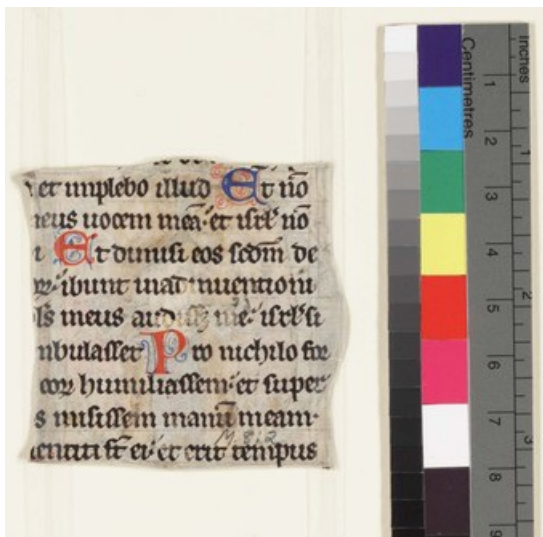 et implebo illud Et nō
meus uocem meā· et isrl' nō
Et dimisi eos scdm̄ de
ibunt in adinuentioni
meus audiss; me: isrl' si
mbulasset Pro nichilo for
eoꝝ humiliassem: et super
s misissem manū meam·
entiti st̄ ei· et erit tempus
M 812
Centimetres
inches
1
2
3
4
5
6
7
8
9
1
2
3